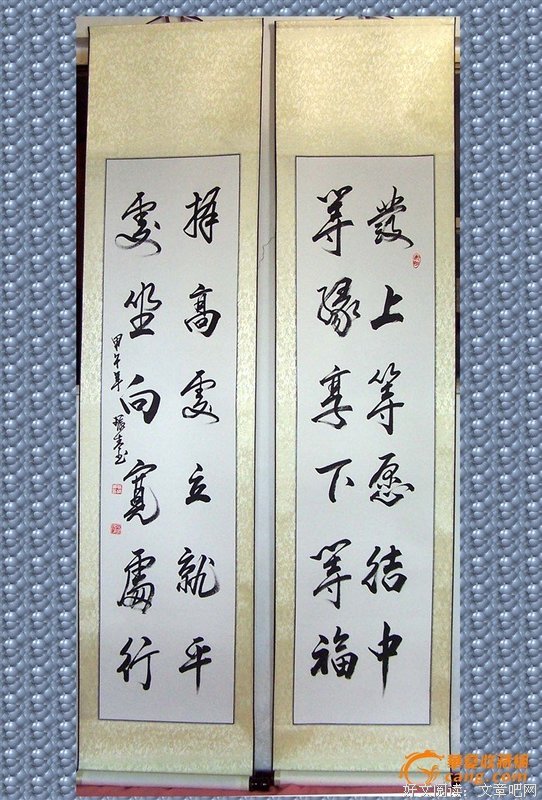 發上等愿结中
等缘享下等福
择高處立就平
處坐向寬處行
甲午年
华夏收藏网
cang.com
好文阅读：文章吧网